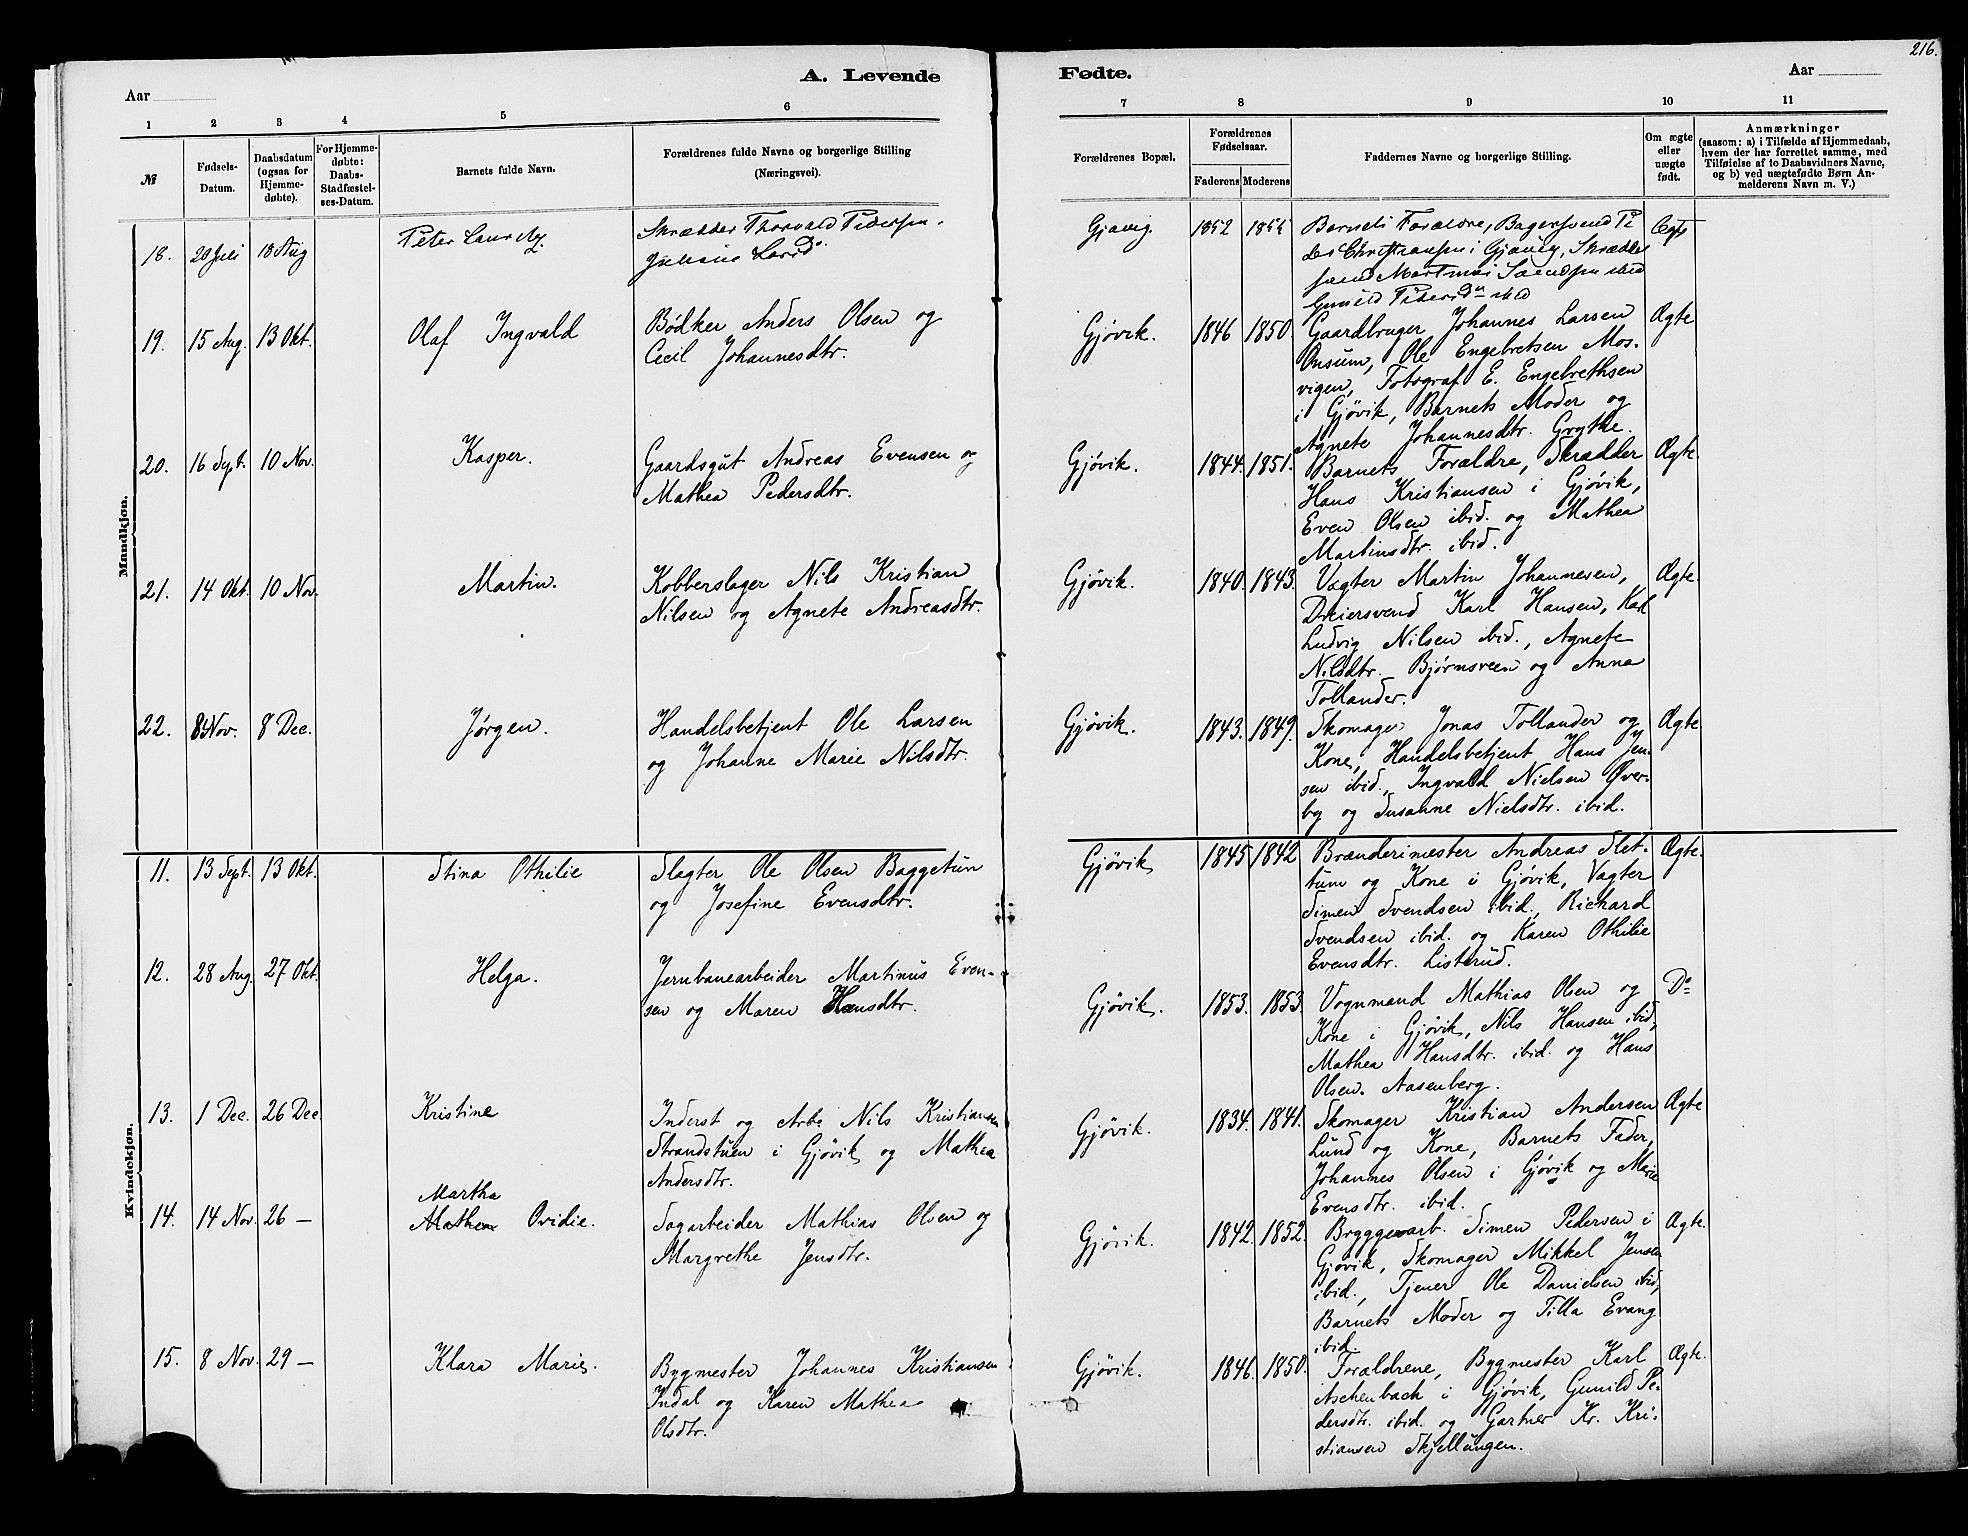 216.
A. Levende
Fødte.
Aar
Aar
1 2 3 4 5 6 7 8 9 10 11
№
Fødsels-
Datum.
Daabsdatum
(ogsaa for
Hjemme-
døbte).
For Hjemme-
døbte:
Daabs-
Stadfæstel-
ses-Datum.
Barnets fulde Navn.
Forældrenes fulde Navne og borgerlige Stilling
(Næringsvei).
Forældrenes Bopæl.
Forældrenes
Fødselsaar.
Faderens Moderens
Faddernes Navne og borgerlige Stilling.
Om ægte
eller
uægte
født.
Anmærkninger
(saasom: a) i Tilfælde af Hjemmedaab,
hvem der har forrettet samme, med
Tilføielse af to Daabsvidners Navne,
og b) ved uægtefødte Børn An-
melderens Navn m. V.)
Mandkjøn.
18. 20 Juli 18 Aug
Peter
Skrædder Thorvald Pedersen
Gjøvig. 1852
Barnets Forældre, Bagersvend Pe
der Christiansen i Gjøvig, Skrædder
svend Martinus Svendsen
19. 15 Aug. 13 Okt.
Olaf Ingvald
Bødker Anders Olsen og
Cecil Johannesdtr.
Gjøvik. 1846 1850.
Gaardbruger Johannes Larsen
Onsum, Ole Engebretsen Mos-
vigen, Fotograf E. Engebrethsen
i Gjøvik, Barnets Moder og
Agnete Johannesdtr. Grythe.
Ægte
20. 16 Sept. 10 Nov.
Kasper.
Gaardsgut Andreas Evensen og
Mathea Pedersdtr.
Gjøvik. 1844. 1851.
Barnets Forældre, Skrædder
Hans Kristiansen i Gjøvik,
Even Olsen ibid. og Mathea
Martinsdtr. ibid.
Ægte.
21. 14 Okt. 10 Nov.
Martin.
Kobberslager Nils Kristian
Nilsen og Agnete Andreasdtr.
Gjøvik. 1840. 1843.
Vagter Martin Johannesen,
Dreiersvend Karl Hansen, Karl
Ludvig Nilsen ibid., Agnete
Nilsdtr. Bjørnsveen og Anna
Tollander.
Ægte.
22. 8 Nov. 8 Dec.
Jørgen.
Handelsbetjent Ole Larsen
og Johanne Marie Nilsdtr.
Gjøvik. 1843. 1849.
Skomager Jonas Tollander og
Kone, Handelsbetjent Hans Jen-
sen ibid., Ingvald Nielsen Øver-
by og Susanne Nielsdtr. ibid.
Ægte
Kvindekjøn.
11. 13 Sept. 13 Okt.
Stina Othilie
Slagter Ole Olsen Baggetun
og Josefine Evensdtr.
Gjøvik 1845 1842
Brænderimester Andreas Slet-
tum og Kone i Gjøvik, Vagter
Simen Svendsen ibid., Richard
Svendsen ibid. og Karen Othilie
Evensdtr. Listerud.
Ægte.
12. 28 Aug. 27 Okt.
Helga.
Jernbanearbeider Martinus Even-
sen og Maren Hansdtr.
Gjøvik. 1853. 1853.
Vognmand Mathias Olsen og
Kone i Gjøvik, Nils Hansen ibid,
Mathea Hansdtr. ibid. og Hans
Olsen Aasenberg.
Do
13. 1 Dec. 26 Dec
Kristine
Inderst og Arb. Nils Kristiansen
Strandstuen i Gjøvik og Mathea
Andersdtr.
Gjøvik. 1834. 1841.
Skomager Kristian Andersen
Lund og Kone, Barnets Fader,
Johannes Olsen i Gjøvik og Marie
Evensdtr. ibid.
Ægte
14. 14 Nov. 26 —
Martha
Mathea Ovidie.
Sagarbeider Mathias Olsen og
Margrethe Jensdtr.
Gjøvik. 1842. 1852.
Bryggerarb. Simen Pedersen i
Gjøvik, Skomager Mikkel Jensen
ibid., Tjener Ole Danielsen ibid,
Barnets Moder og Tilla Evang
ibid.
Ægte.
15. 8 Nov. 29 —
Klara Marie.
Bygmester Johannes Kristiansen
Indal og Karen Mathea
Olsdtr.
Gjøvik. 1846. 1850.
Forældrene, Bygmester Karl
Aschenbach i Gjøvik, Gunild Pe-
dersdtr. ibid. og Gartner Kr. Kri-
stiansen Skjellungen.
Ægte.